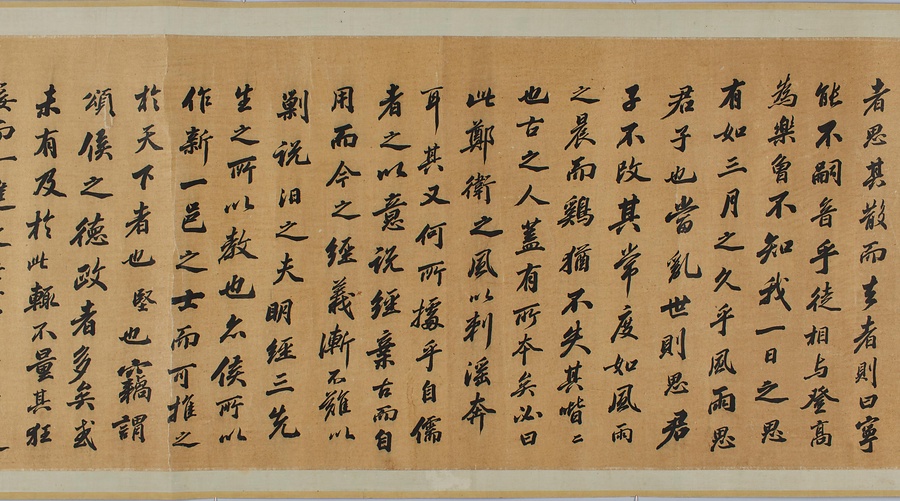 者思其散而去者則曰寧
能不嗣音乎徒相与登高
為樂曾不知我一日之思
有如三月之久乎風雨思
君子也當乱世則思君
子不改其常度如風雨
之晨而鷄猶不失其喈〻
也古之人蓋有所本矣必曰
此鄭衛之風以刺淫奔
耳其又何所據乎自儒
者之以意説經棄古而自
用而今之經義漸不難以
剿説汩之夫明經三先
生之所以教也亦侯所以
作新一邑之士而可推之
於天下者也堅也竊謂
頌侯之德政者多矣或
未有及於此輙不量其狂
而一